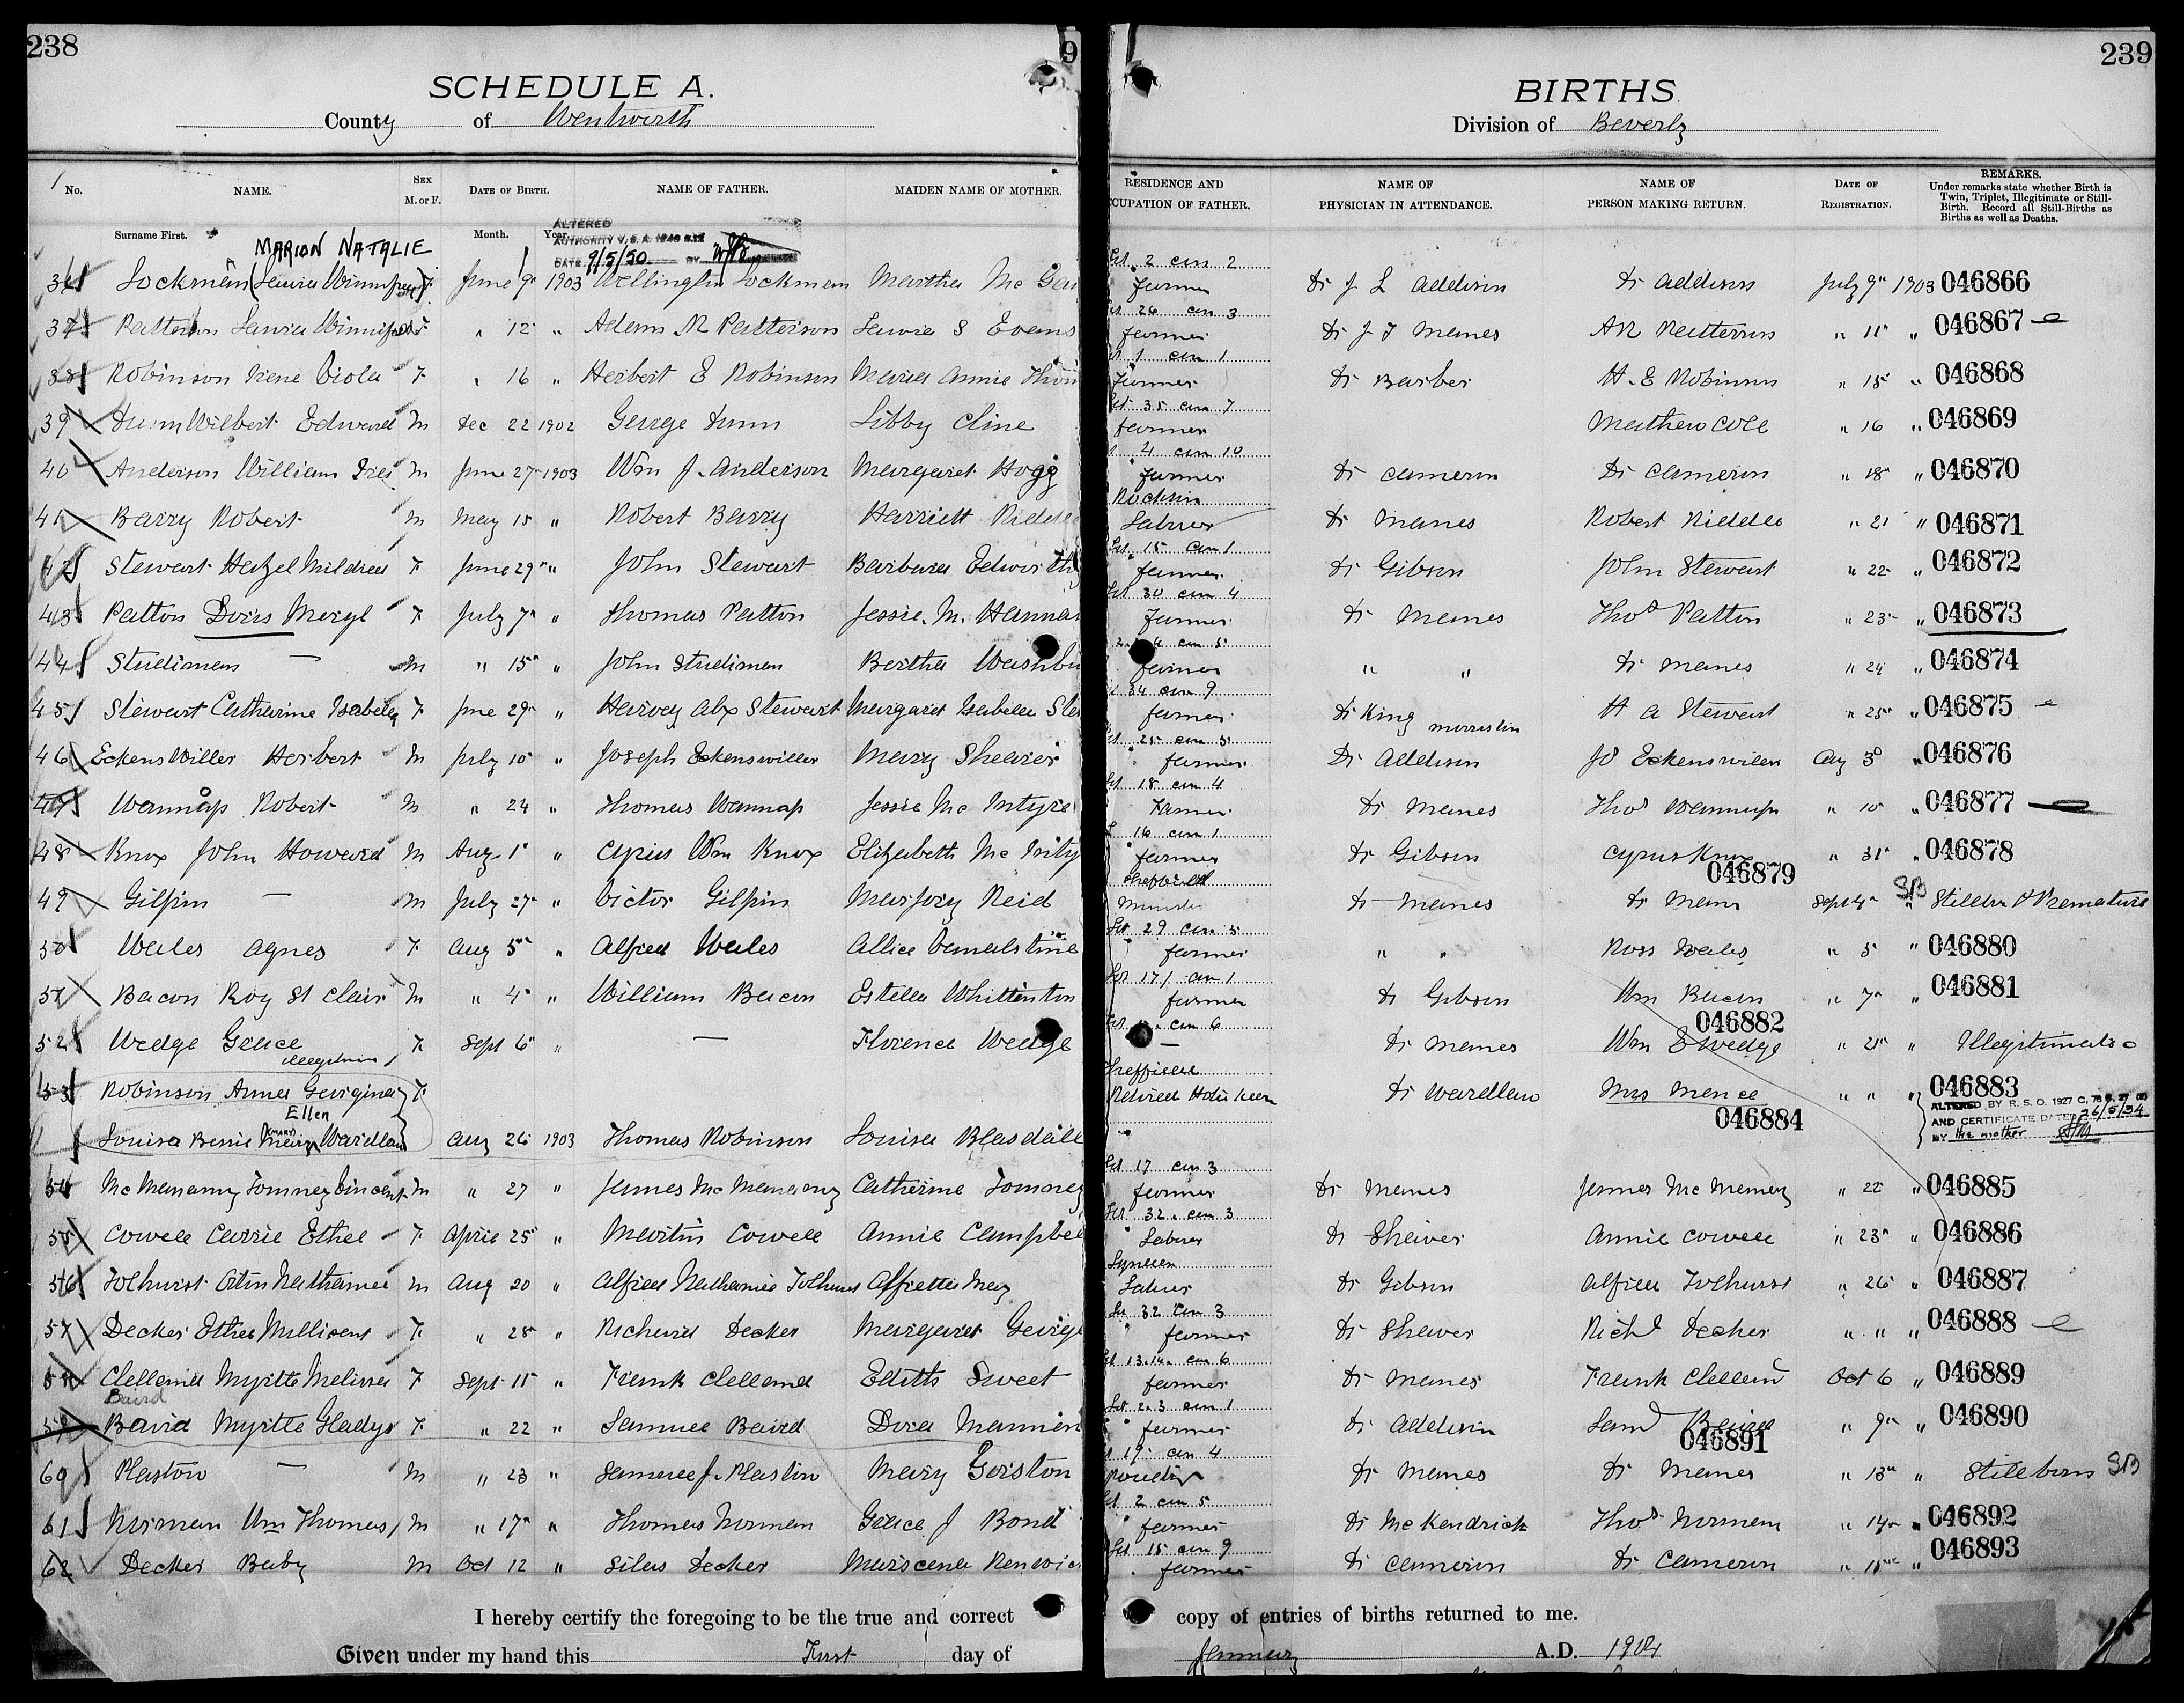 238
9
SCHEDULE A.
County of Wentworth
No. NAME. SEX M. or F. DATE OF BIRTH. NAME OF FATHER. MAIDEN NAME OF MOTHER.
Surname First. Month. Year.
ALTERED
DATE 9/5/50. BY
MARION NATALIE
36 Lockman (Laura Winnifred) F June 9" 1903 Wellington Lockman Martha Mc
37 Patterson Laura Winnifred F " 12 " Adam R Patterson Laura S Evans
38 Robinson Irene Viola F " 16 " Herbert E Robinson Maria Annie
39 Dunn Wilbert Edward M Dec 22 1902 George Dunn Libby Cline
40 Anderson William M June 27 1903 Wm J. Anderson Margaret Hogg
41 Barry Robert M May 15 " Robert Barry Harriett
42 Stewart Hazel Mildred F June 29" " John Stewart Barbara
43 Patton Doris Meryl F July 7" " Thomas Patton Jessie. M. Hannah
44 Studiman — M " 15" " John Studiman Bertha
45 Stewart Catharine Isabella F June 29" " Harvey Alx Stewart Margaret Isabella
46 Eckenswiller Herbert M July 10 " Joseph Eckenswiller Mary Shearer
47 Wannop Robert M " 24 " Thomas Wannop Jessie Mc Intyre
48 Knox John Howard M Aug 1" " Cyrus Wm Knox Elizabeth Mc
49 Gilpin — M July 27" " Victor Gilpin Marjory Reid
50 Wales Agnes F Aug 5" " Alfred Wales Allice
51 Bacon Roy St Clair M " 4" " William Bacon Estella Whittinton
52 Wedge Grace F Sept 6" " — Florence Wedge
illegitimate
53 Robinson Anna Georgina F
Ellen
(Mary)
Louisa Bessie Mary Wardlaw Aug 26 1903 Thomas Robinson Louisa Blasdall
54 Mc Manamy Tomney Vincent M " 27 " James Mc Manamy Catherine Tomney
55 Cowell Carrie Ethel F April 25 " Martin Cowell Annie
56 Tolhurst Nathaniel M Aug 20 " Alfred Nathaniel Alfretta May
57 Decker Ethel Millisent F " 28 " Richard Decker Margaret
58 Clelland Myrtle Melissa F Sept 11" " Frank Clelland Edith Sweet
Baird
59 Baird Myrtle Gladys F " 22 " Samuel Baird Dora
60 Plastow — M " 23 " Samuel J. Plastow Mary Gorston
61 Norman Wm Thomas M " 17" " Thomas Norman Grace J Bond
62 Decker Baby M Oct 12 " Silas Decker
I hereby certify the foregoing to be the true and correct
Given under my hand this First day of
239
BIRTHS
Division of Beverly
RESIDENCE AND OCCUPATION OF FATHER. NAME OF PHYSICIAN IN ATTENDANCE. NAME OF PERSON MAKING RETURN. DATE OF REGISTRATION. REMARKS.
Under remarks state whether Birth is Twin, Triplet, Illegitimate or Still-Birth. Record all Still-Births as Births as well as Deaths.
Lot 2 con 2
farmer Dr J L Addison Dr Addison July 9" 1903 046866
26 con 3
farmer Dr J T Manes A R Patterson " 11" " 046867
1 con 1
Farmer Dr Barber H. E Robinson " 15" " 046868
35 con 7
farmer Mathew Cole " 16 " 046869
4 con 10
farmer Dr Cameron Dr Cameron " 18" " 046870
Rockton
Laborer Dr Manes Robert " 21 " 046871
Lot 15 Con 1
farmer Dr Gibson John Stewart " 22 " 046872
Lot 30 con 4
farmer Dr Manes Thos Patton " 23 " 046873
con 5
farmer " " Dr Manes " 24 " 046874
34 con 9
farmer Dr King Morriston H A Stewart " 25" " 046875
25 con 5
farmer Dr Addison Jo Eckenswiller Aug 3 " 046876
Lot 18 con 4
Farmer Dr Manes Thos Wannop " 10 " 046877
16 con 1
farmer Dr Gibson Cyrus Knox " 31" " 046878
046879
Sheffield
Dr Manes Dr Manes Sept 4" " SB Premature
Lot 29 Con 5
farmer " " Ross Wales " 5 " 046880
Lot 17 con 1
farmer Dr Gibson Wm Bacon " 7" " 046881
con 6 046882
— Dr Manes Wm E Wedge " 21" " Illegitimate
Sheffield
Retired Dr Wardlaw Mrs Mence " " " 046883
046884
ALTERED BY R. S. O. 1927 C. 78
AND CERTIFICATE DATED 26/5/34
BY the mother
Lot 17 con 3
farmer Dr Manes James Mc " 22 " 046885
Lot 32. con 3
Laborer Dr Shaver Annie Cowell " 23" " 046886
Lynden
Laborer Dr Gibson Alfred Tolhurst " 26 " 046887
Lot 32 Con 3
farmer Dr Shaver Richd Decker " " " 046888
Lot 13.14. con 6
farmer Dr Manes Frank Clelland Oct 6 " 046889
Lot 2.3 con 1
farmer Dr Addison Saml Baird " 9" " 046890
046891
19 con 4
Dr Manes Dr Manes " 13" " Still born SB
Lot 2 con 5
farmer Dr McKendrick Thos Norman " 14" " 046892
Lot 15 con 9
farmer Dr Cameron Dr Cameron " " 046893
copy of entries of births returned to me.
January A.D. 1904